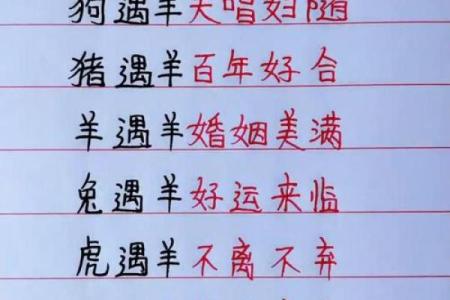 狗遇羊夫唱妇随
猪遇羊百年好合
羊遇羊婚姻美满
兔遇羊好运来临
虎遇羊不离不弃